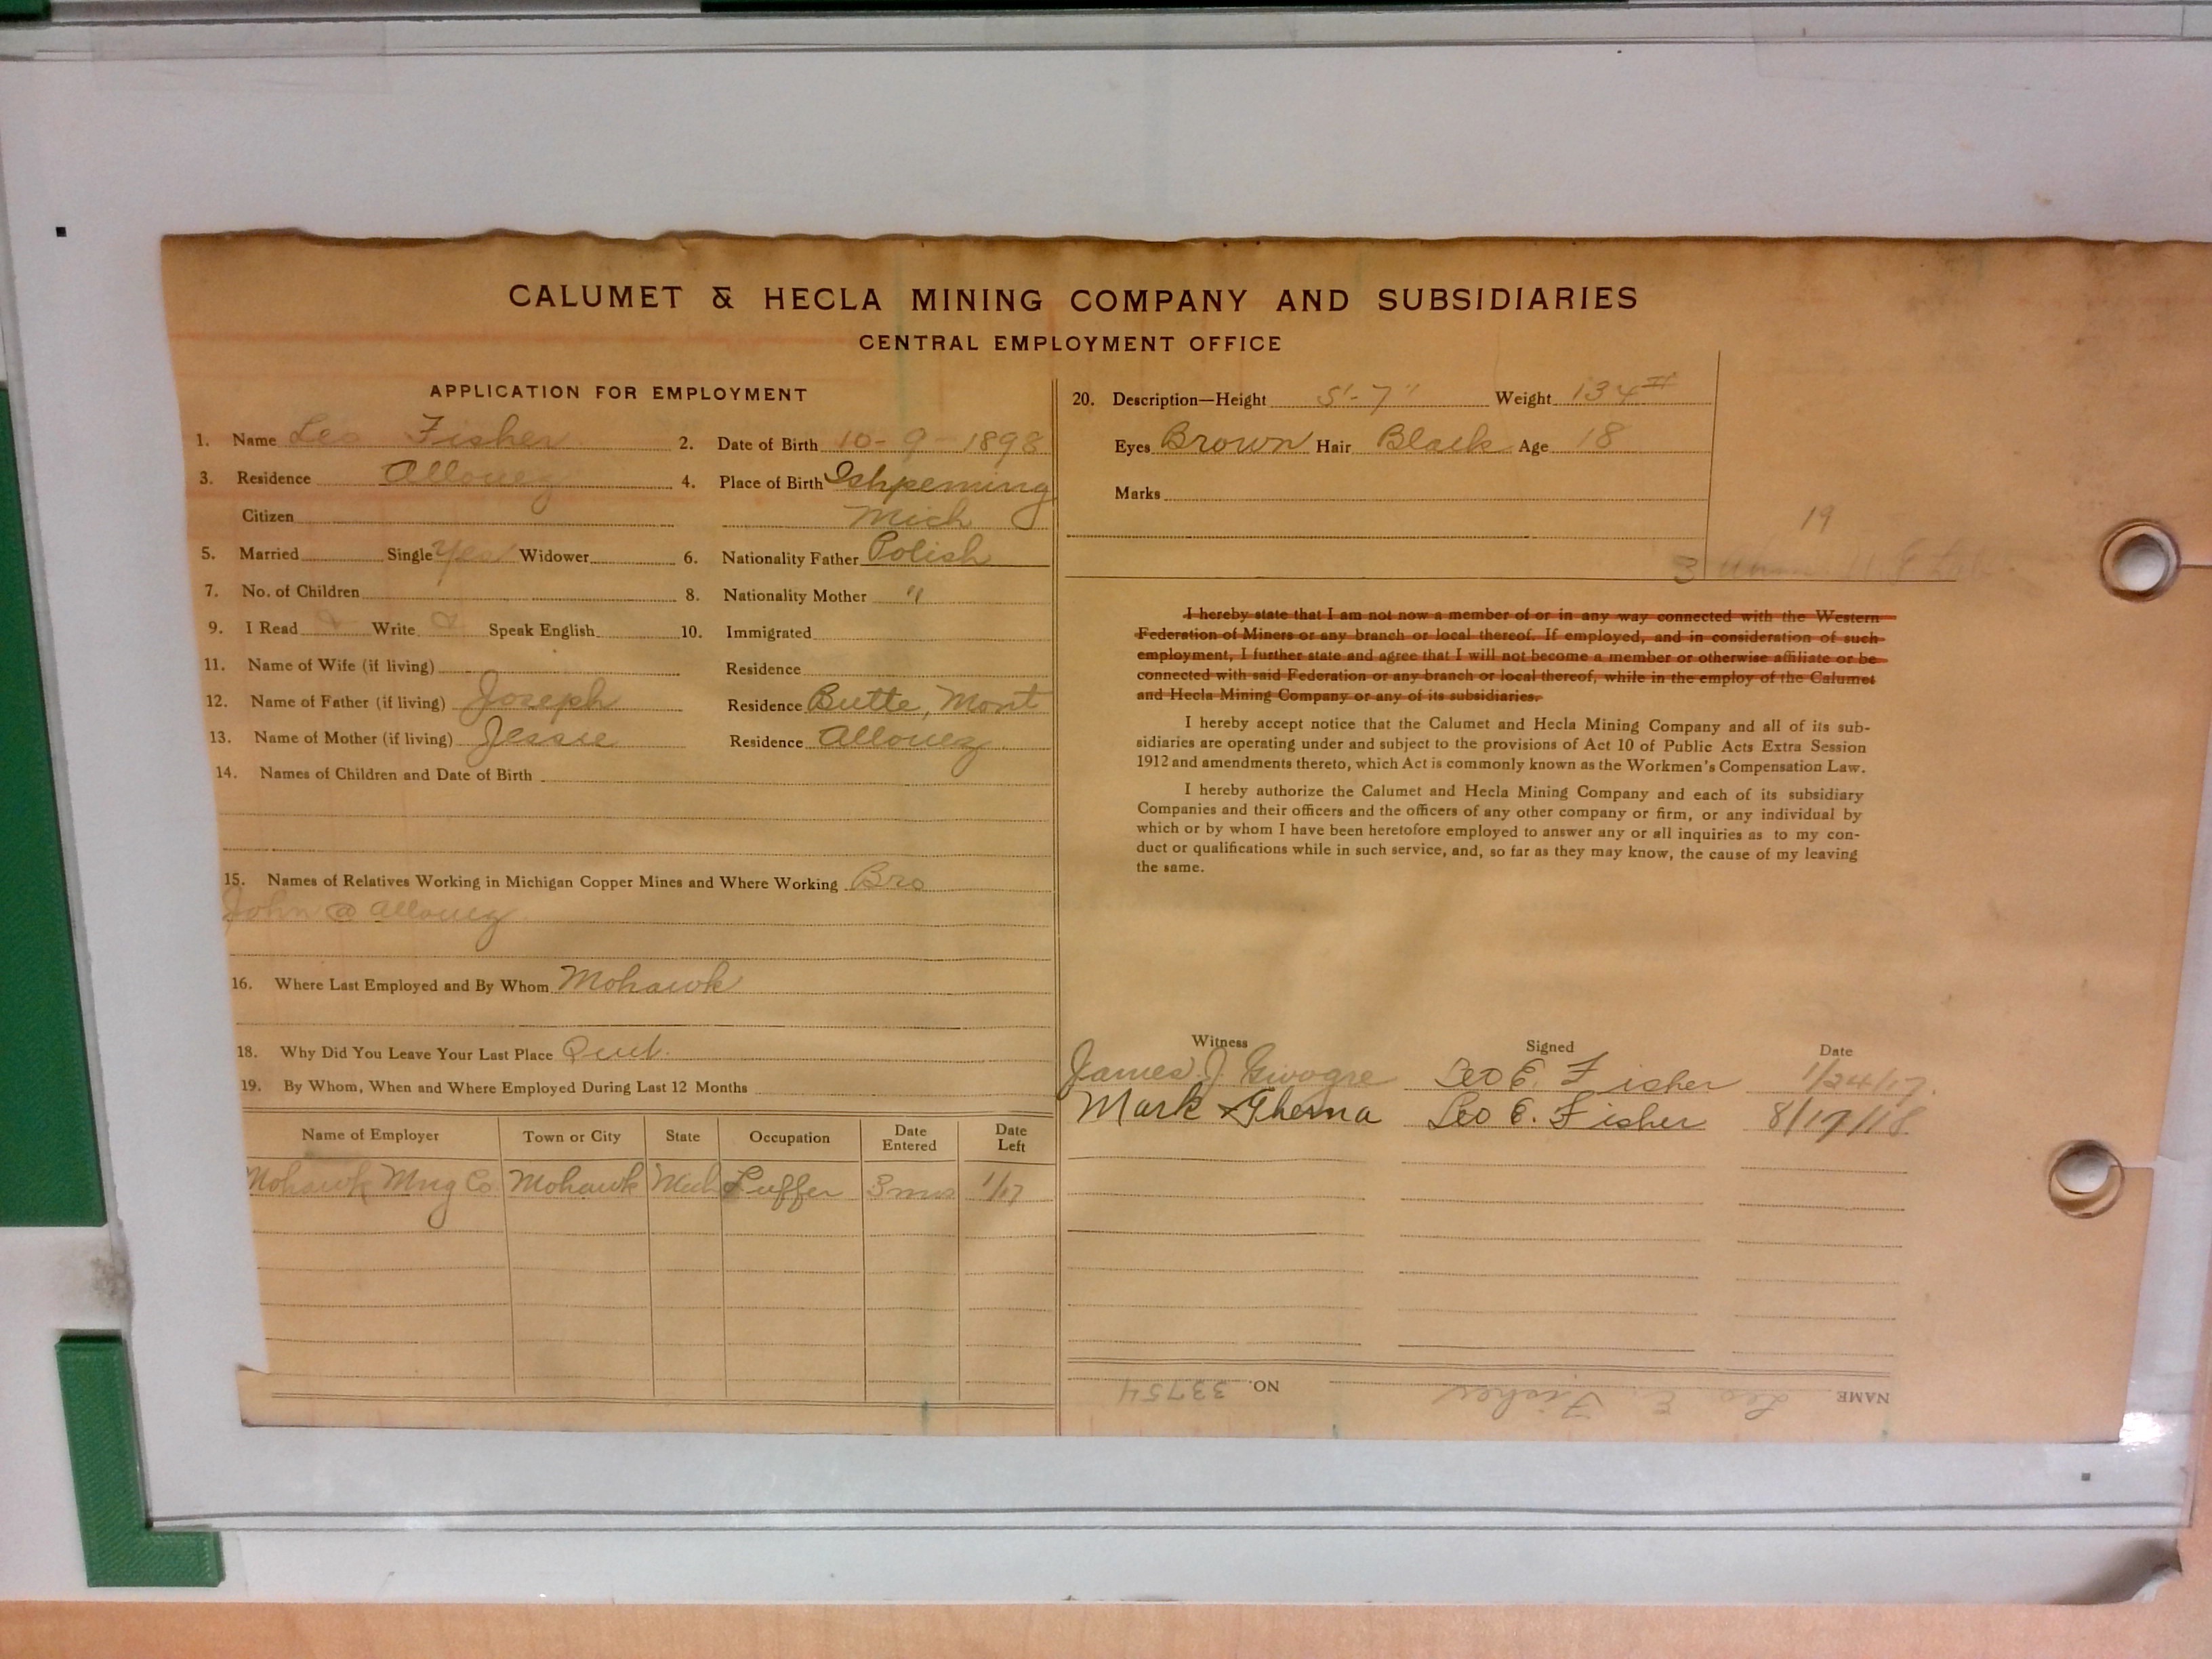 CALUMET & HECLA MINING COMPANY AND SUBSIDIARIES
CENTRAL EMPLOYMENT OFFICE
APPLICATION FOR EMPLOYMENT
1. Name Leo Fisher 2. Date of Birth 10-9-1898
3. Residence Allouez 4. Place of Birth Ishpeming
Citizen Mich
5. Married Single Yes Widower 6. Nationality Father Polish
7. No. of Children 8. Nationality Mother "
9. I Read Write Speak English 10. Immigrated
11. Name of Wife (if living) Residence
12. Name of Father (if living) Joseph Residence Butte, Mont
13. Name of Mother (if living) Jessie Residence Allouez
14. Names of Children and Date of Birth
15. Names of Relatives Working in Michigan Copper Mines and Where Working Bro
John @ Allouez
16. Where Last Employed and By Whom Mohawk
18. Why Did You Leave Your Last Place Quit.
19. By Whom, When and Where Employed During Last 12 Months
Name of Employer Town or City State Occupation Date Entered Date Left
Mohawk Mng Co Mohawk Mich 3 mos 1/17
20. Description—Height 5'-7" Weight 134#
Eyes Brown Hair Black Age 18
Marks
19
3
I hereby state that I am not now a member of or in any way connected with the Western
Federation of Miners or any branch or local thereof. If employed, and in consideration of such
employment, I further state and agree that I will not become a member or otherwise affiliate or be
connected with said Federation or any branch or local thereof, while in the employ of the Calumet
and Hecla Mining Company or any of its subsidiaries.
I hereby accept notice that the Calumet and Hecla Mining Company and all of its sub-
sidiaries are operating under and subject to the provisions of Act 10 of Public Acts Extra Session
1912 and amendments thereto, which Act is commonly known as the Workmen's Compensation Law.
I hereby authorize the Calumet and Hecla Mining Company and each of its subsidiary
Companies and their officers and the officers of any other company or firm, or any individual by
which or by whom I have been heretofore employed to answer any or all inquiries as to my con-
duct or qualifications while in such service, and, so far as they may know, the cause of my leaving
the same.
Witness Signed Date
James J Leo E. Fisher 1/24/17.
Mark Leo E. Fisher 8/19/18
NAME Leo E. Fisher NO. 33754